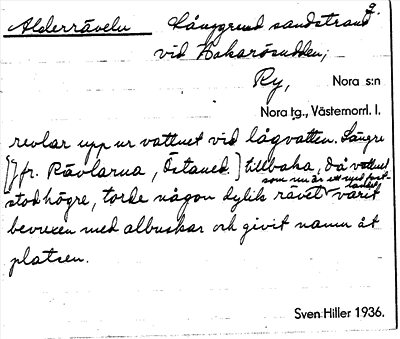 Alderräveln Långgrund sandstrand
vid Hakarösudden;
Ry, Nora s:n
Nora tg., Västernorrl. l.
revlar upp ur vattnet vid lågvatten. Längre
[Jfr. Rävlarna, Östaned.] tillbaka, då vattnet
som nu är ett med fast-
landet
stod högre, torde någon dylik rävel varit
bevuxen med albuskar och givit namn åt
platsen.
Sven Hiller 1936.